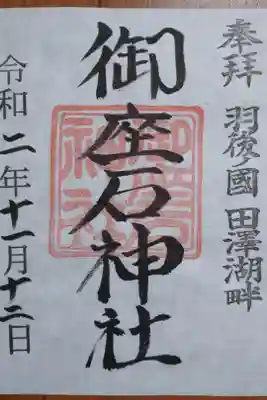 奉拝 羽後ノ國 田澤湖畔
御座石神社
令和二年十一月十二日